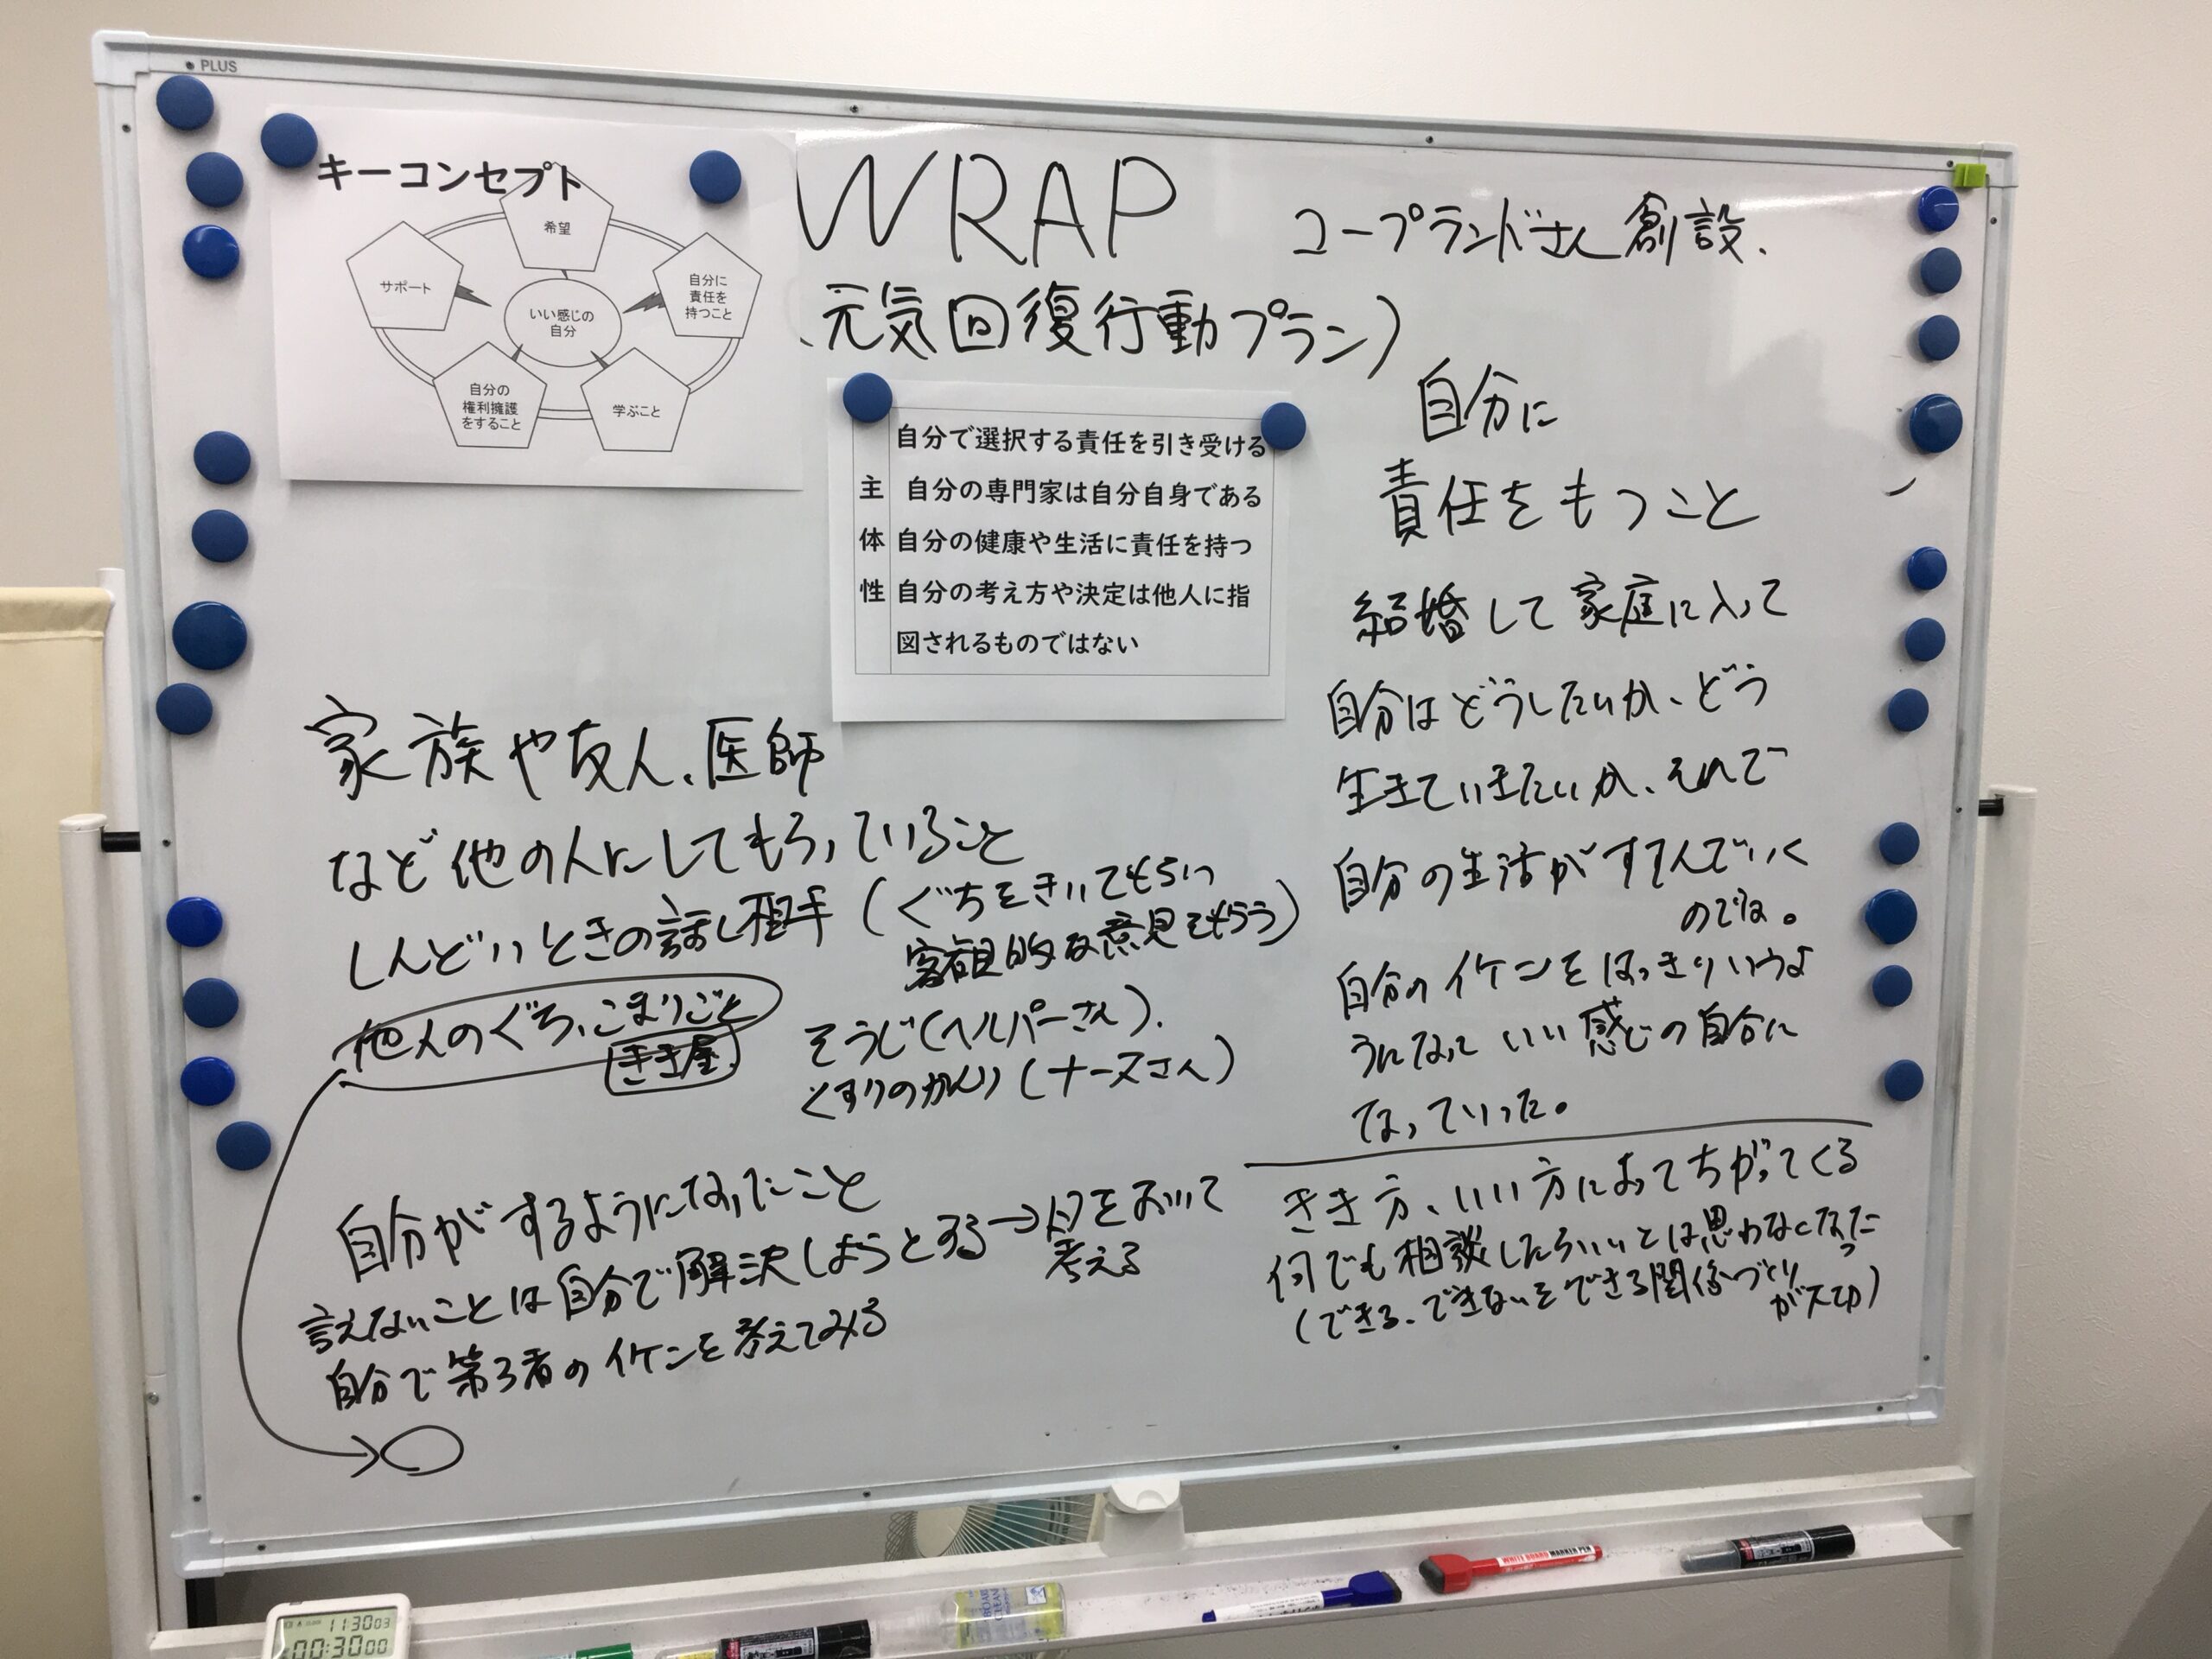 PLUS
キーコンセプト
希望
サポート
自分に
責任を
持つこと
いい感じの
自分
自分の
権利擁護
をすること
学ぶこと
WRAP
コープランドさん創設、
(元気回復行動プラン)
主体性
自分で選択する責任を引き受ける
自分の専門家は自分自身である
自分の健康や生活に責任を持つ
自分の考え方や決定は他人に指
図されるものではない
自分に
責任をもつこと
結婚して家庭に入って
自分はどうしたいか、どう
生きていきたいか、それで
自分の生活がすすんでいく
のでは。
自分のイケンをはっきりいうよ
うになっていい感じの自分に
なっていった。
きき方、いい方によってちがってくる
何でも相談したらいいとは思わなくなった
(できる、できないをできる関係づくり
が大切)
家族や友人、医師
など他の人にしてもらっていること
しんどいときの話し相手(ぐちをきいてもらい
客観的な意見をもらう)
他人のぐち、こまりごと
きき屋
そうじ(ヘルパーさん).
くすりのかんり(ナースさん)
自分がするようになったこと
言えないことは自分で解決しようとする→日をおいて
考える
自分で第3者のイケンを考えてみる
WHITE BOARD MARKER PEN
BOARD
CLEAN
113003
00:3000